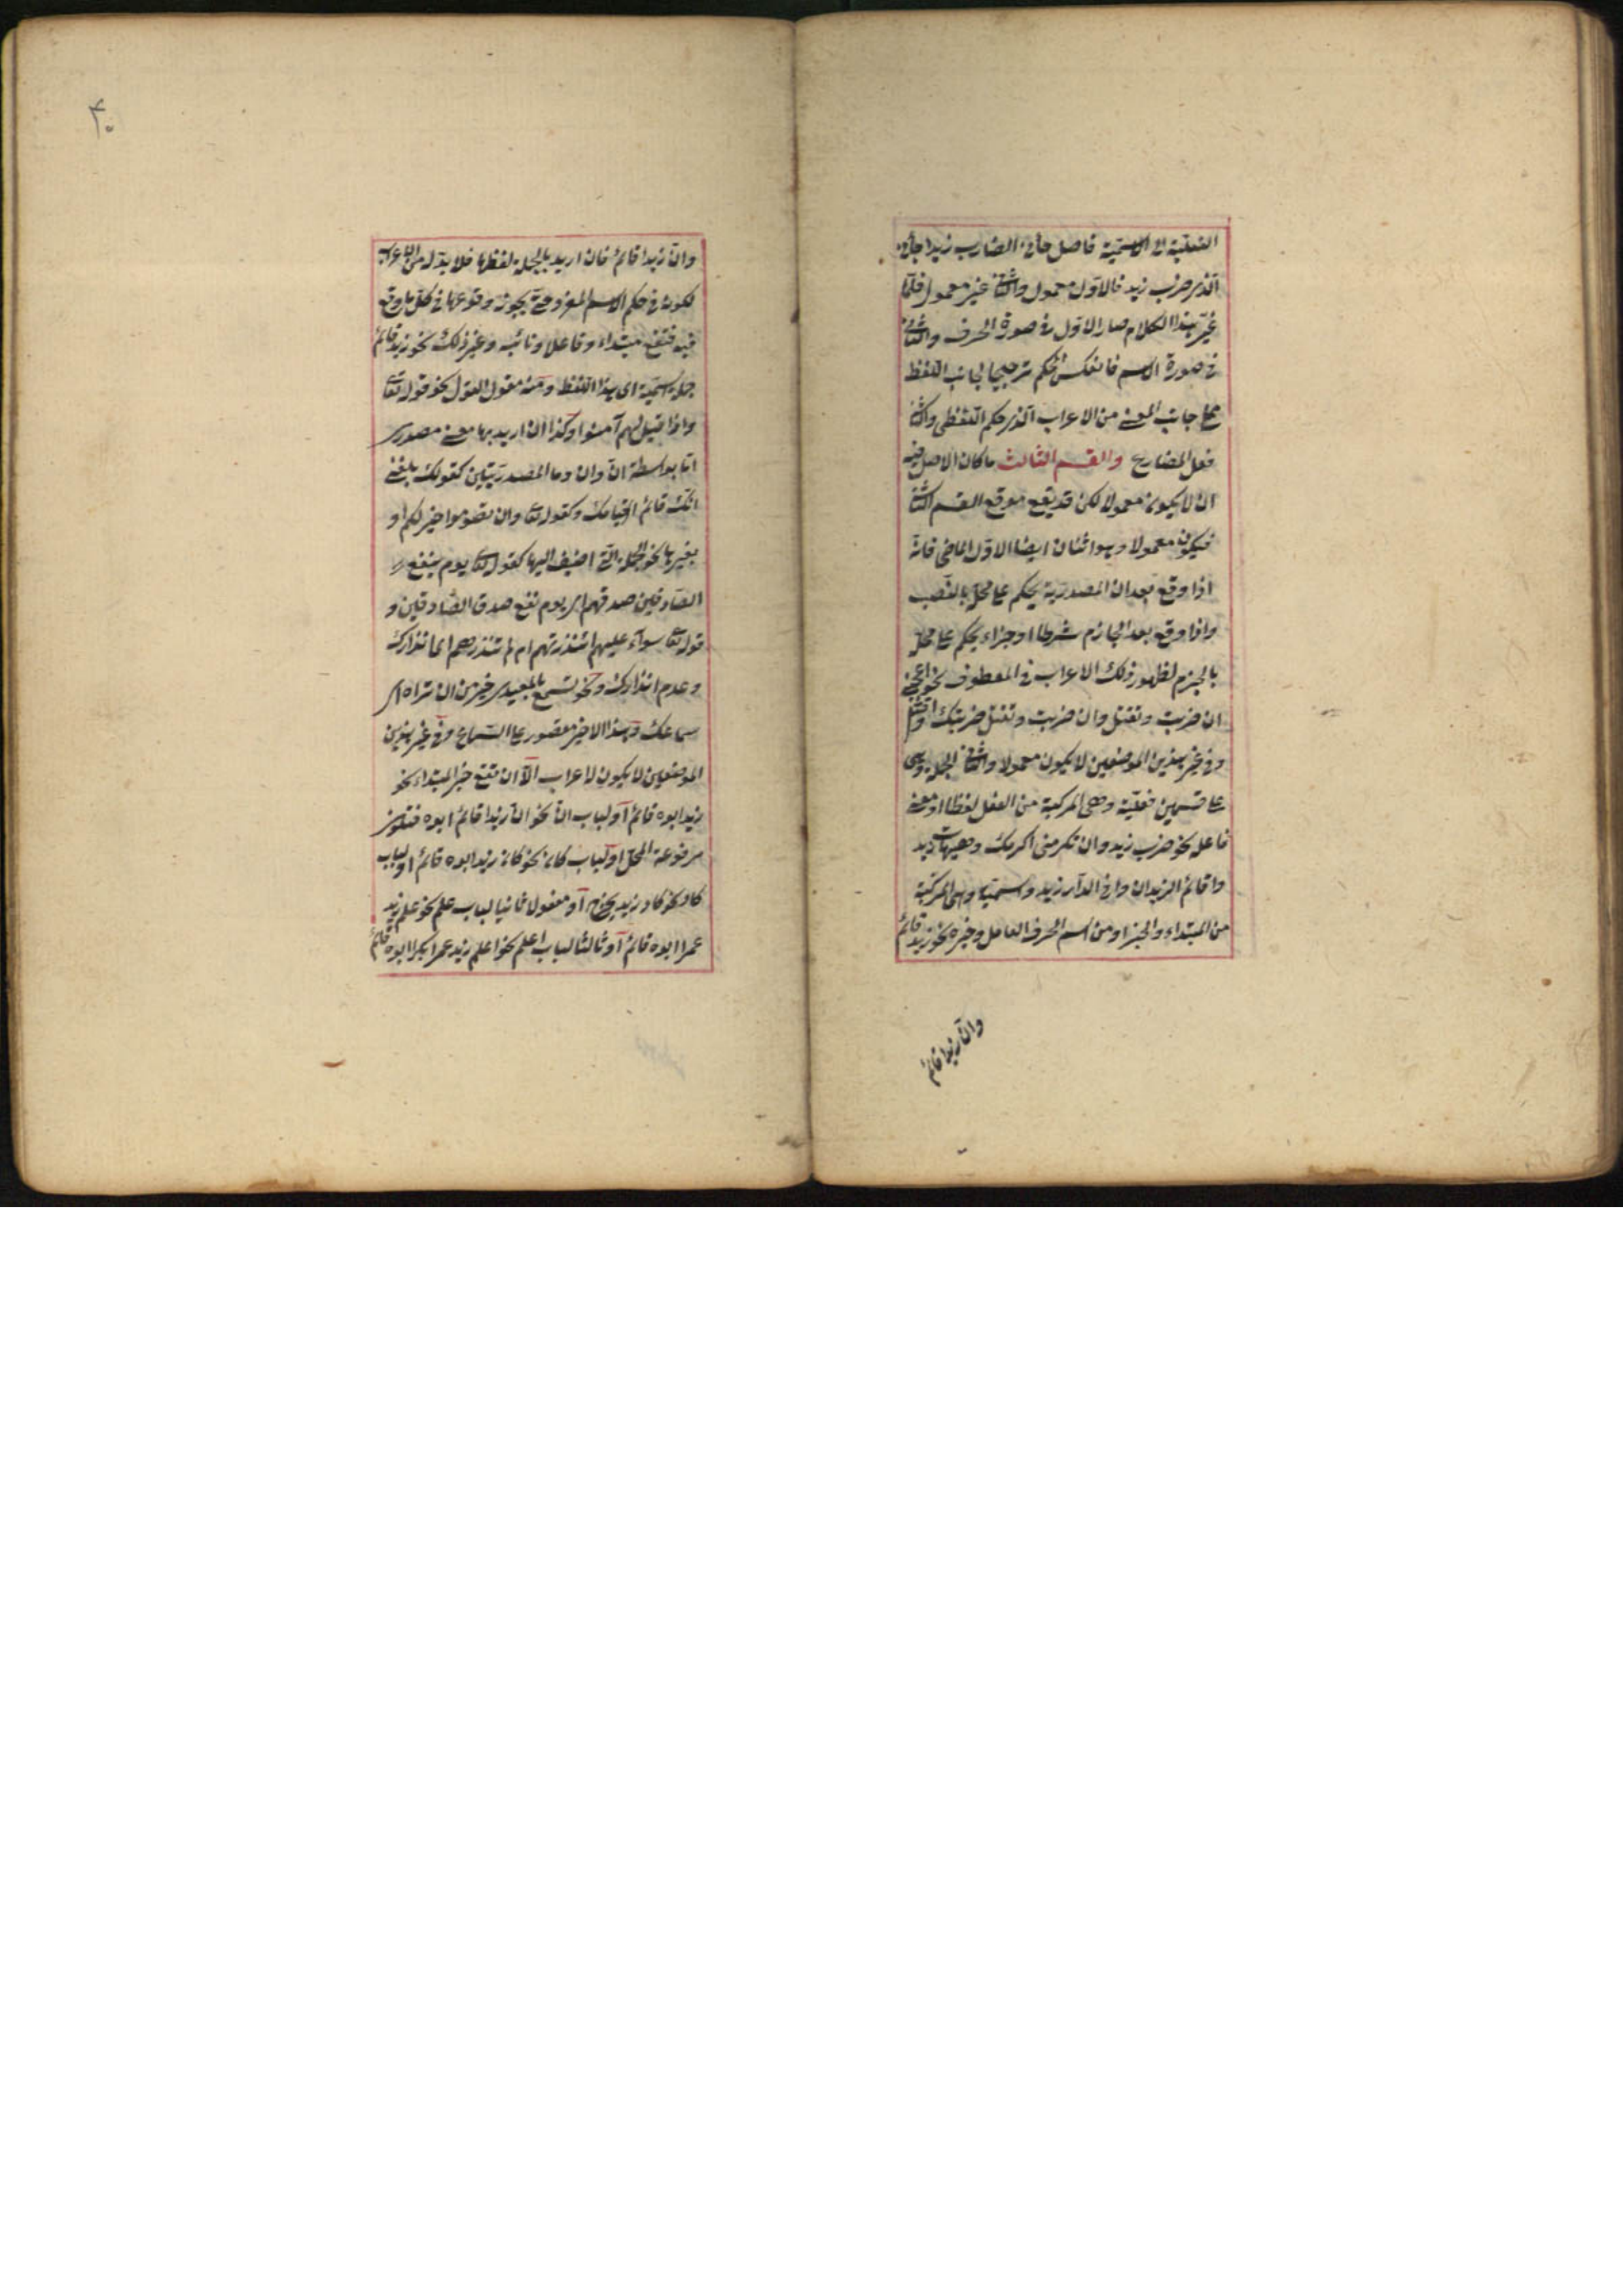 الفعلية الى الاسمية فاصل جاءنى الضارب زيدا جاءنى
الذى ضرب زيد فالاول معمول والثانى غير معمول فلما
غير هذا الكلام صار الاول فى صورة الحرف والثانى
فى صورة الاسم فانعكس الحكم ترجيحا لجانب اللفظ
على جانب المعنى من الاعراب الذى حكم اللفظى والثانى
فعل المضارع والقسم الثالث ما كان الاصل فيه
ان لا يكون معمولا لكن قد يقع موقع القسم الثانى
فيكون معمولا وهو اثنان ايضا الاول الماضى فانه
اذا وقع بعد ان المصدرية يحكم على محله بالنصب
واذا وقع بعد الجازم شرطا او جزاء يحكم على محله
بالجزم لظهور ذلك الاعراب فى المعطوف نحو اعجبنى
ان ضربت وتقتل وان ضربت وتقتل ضربتك واقتل
وفى غير هذين الموضعين لا يكون معمولا والثانى الجملة وهى
على قسمين فعلية وهى المركبة من الفعل لفظا او معنى
فاعله نحو ضرب زيد وان تكرمنى اكرمك وهيهات زيد
واقائم الزيدان وافى الدار زيد واسمية وهى المركبة
من المبتداء والخبر او من اسم الحرف العامل وخبره نحو زيد قائم
وان زيدا قائم
۴۰
وان زيدا قائم فان اريد بالجملة لفظها فلا بد له من الاعراب
لكونه فى حكم الاسم المفرد حتى يجوز وقوعها فى كل ما وقع
فيه فتقع مبتداء وفاعلا ونائبه وغير ذلك نحو زيد قائم
جملة اسمية اى هذا اللفظ ومنه مقول القول نحو قوله تعالى
واذا قيل لهم آمنوا وكذا ان اريد بها معنى مصدرى
اما بواسطة ان وان وما المصدريتين كقولك بلغنى
انك قائم اى قيامك وكقوله تعالى وان تصوموا خير لكم او
بغيرها نحو الجملة التى اضيف اليها كقوله تعالى يوم ينفع
الصادقين صدقهم اى يوم نفع صدق الصادقين و
قوله تعالى سواء عليهم ءانذرتهم ام لم تنذرهم اى انذارك
وعدم انذارك ونحو تسمع بالمعيدى خير من ان تراه اى
سماعك وهذا الاخير مقصور على السماع وفى غير هذين
الموضعين لا يكون له اعراب الا ان تقع خبر المبتداء نحو
زيد ابوه قائم او لباب ان نحو ان زيدا قائم ابوه فتكون
مرفوعة المحل او لباب كان نحو كان زيد ابوه قائم او لباب
كاد نحو كاد زيد يخرج او مفعولا ثانيا لباب علم نحو علم زيد
عمرا ابوه قائم او ثالثا لباب اعلم نحو اعلم زيد عمرا بكرا ابوه قائم